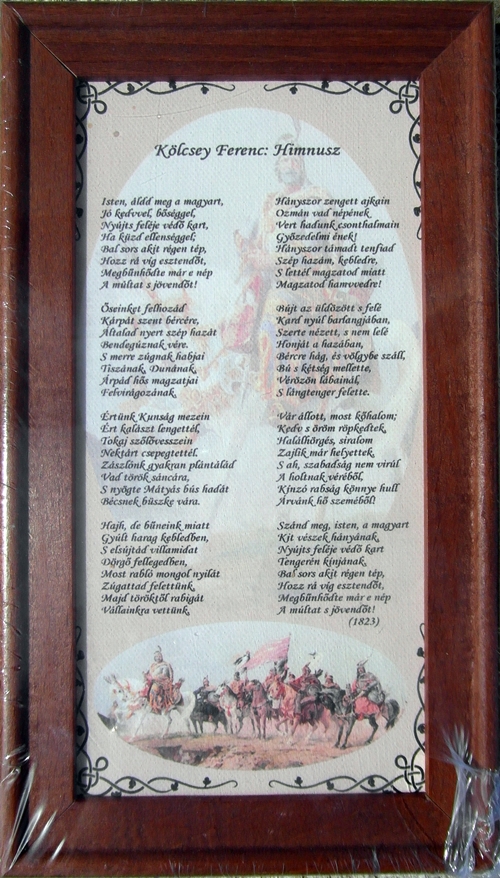 Kölcsey Ferenc: Himnusz
Isten, áldd meg a magyart,
Jó kedvvel, bőséggel,
Nyújts feléje védő kart,
Ha küzd ellenséggel;
Bal sors akit régen tép,
Hozz rá víg esztendőt,
Megbűnhődte már e nép
A múltat s jövendőt!
Őseinket felhozád
Kárpát szent bércére,
Általad nyert szép hazát
Bendegúznak vére.
S merre zúgnak habjai
Tiszának, Dunának,
Árpád hős magzatjai
Felvirágozának.
Értünk Kunság mezein
Ért kalászt lengettél,
Tokaj szőlővesszein
Nektárt csepegtettél.
Zászlónk gyakran plántálád
Vad török sáncára,
S nyögte Mátyás bús hadát
Bécsnek büszke vára.
Hajh, de bűneink miatt
Gyúlt harag kebledben,
S elsújtád villámidat
Dörgő fellegedben,
Most rabló mongol nyilát
Zúgattad felettünk,
Majd töröktől rabigát
Vállainkra vettünk.
Hányszor zengett ajkain
Ozmán vad népének
Vert hadunk csonthalmain
Győzedelmi ének!
Hányszor támadt tenfiad
Szép hazám, kebledre,
S lettél magzatod miatt
Magzatod hamvvedre!
Bújt az üldözött s felé
Kard nyúl barlangjában,
Szerte nézett, s nem lelé
Honját a hazában,
Bércre hág, és völgybe száll,
Bú s kétség mellette,
Vérözön lábainál,
S lángtenger felette.
Vár állott, most kőhalom;
Kedv s öröm röpkedtek,
Halálhörgés, siralom
Zajlik már helyettek.
S ah, szabadság nem virúl
A holtnak véréből,
Kínzó rabság könnye hull
Árvánk hő szeméből!
Szánd meg, isten, a magyart
Kit vészek hányának,
Nyújts feléje védő kart
Tengerén kínjának.
Bal sors akit régen tép,
Hozz rá víg esztendőt,
Megbűnhődte már e nép
A múltat s jövendőt!
(1823)